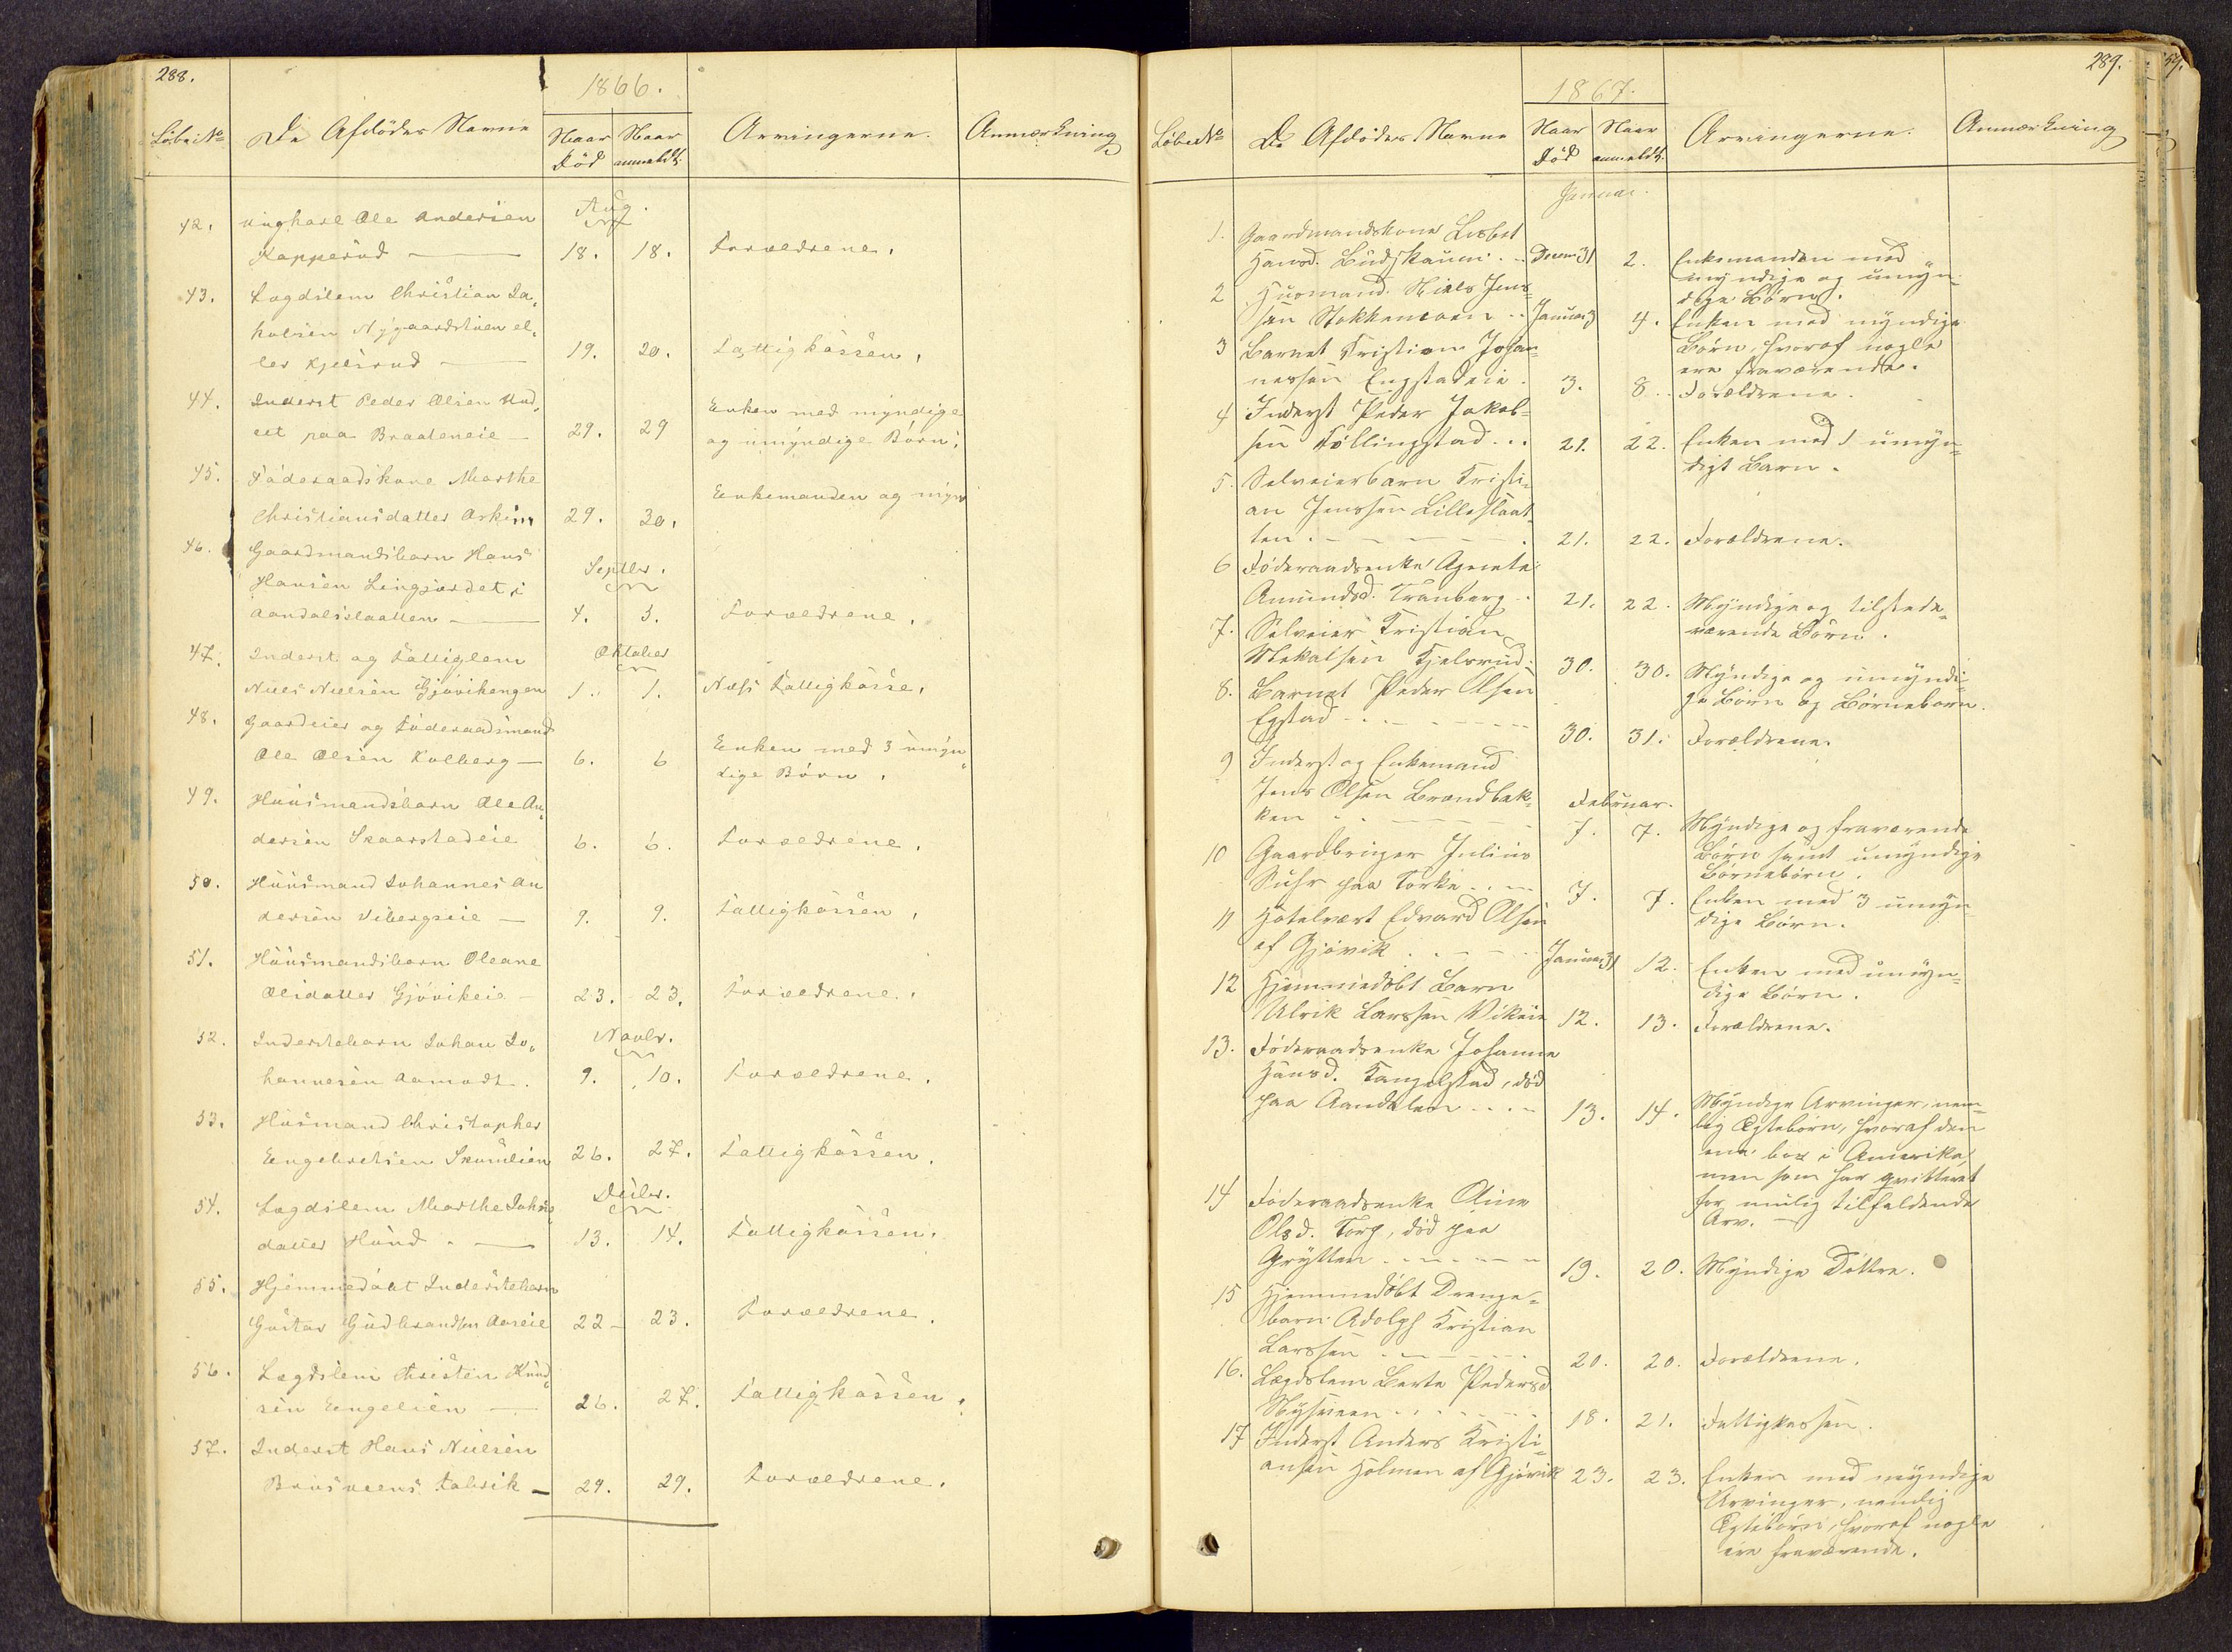 288.
1866.
Löbe No
De Afdödes Navne
Naar Död
Naar anmeldt.
Arvingerne.
Anmærkning
Aug.
42. Ungkarl Ole Andersen
Kapperud — 18. 18. Forældrene.
43. Lægdslem Christian Ja-
kobsen Nygaardstuen el-
ler Kjelsrud — 19. 20. Fattigkassen.
44. Inderst Peder Olsen
paa Braateneie — 29. 29 Enken med myndige
og umyndige Börn.
45. Föderaadskone Marthe
Christiansdatter 29. 30. Enkemanden og
46. Gaardmandsbarn Hans
Septbr.
Hansen Lingjordet i
Aandalsslaatten — 4. 5. Forældrene.
47. Inderst og Fattiglem
Oktober
Niels Nielsen Gjövikengen 1. 1. Næss Fattigkasse.
48. Gaardeier og Föderaadsmand
Ole Olsen Kolberg — 6. 6 Enken med 3 umyn-
dige Börn.
49. Huusmandsbarn Ole An-
dersen Skaarstadeie 6. 6. Forældrene.
50. Huusmand Johannes An
dersen Vibergseie — 9. 9. Fattigkassen.
51. Huusmandsbarn Oleane
Olsdatter Gjövikeie — 23. 23. Forældrene.
52. Inderstebarn Johan Jo-
Novbr.
hannesen Aamodt. 9. 10. Forældrene.
53. Husmand Christopher
Engebretsen Skumlien 26. 27. Fattigkassen.
Decbr.
54. Lægdslem Marthe Johns-
datter Hund — 13. 14. Fattigkassen.
55. Hjemmedöbt Inderstebarn
Gustav Gudbrandsen Aaseie 22 — 23. Forældrene.
56. Lægdslem Christen Knud-
sen Engelien — 26. 27. Fattigkassen.
57. Inderst Hans Nielsen
Brusveens Fabrik — 29. 29. Forældrene.
289.
1867.
Löbe No
De Afdödes Navne
Naar Död
Naar anmeldt.
Arvingerne.
Anmærkning
Januar.
1. Gaardmandskone Lisbet
Hansd. Budskaum . . Decem 31 2. Enkemanden med
myndige og umyn-
dige Börn.
2 Husmand Niels Jens-
sen Stokkemoen . . Januar 3 4. Enken med myndige
Börn, hvoraf nogle
ere fraværende.
3 Barnet Kristian Johan-
nessen Engstadeie. 3. 8. Forældrene.
4 Inderst Peder Jakob-
sen Föllingstad . . . 21. 22. Enken med 1 umyn-
digt Barn.
5. Selveierbarn Kristi-
an Jenssen Lilleslaat-
ten . - - - - 21. 22. Forældrene.
6 Föderaadsenke Agnete
Amundsd. Tranberg. 21. 22. Myndige og tilstede-
værende Börn.
7. Selveier Kristian
Mekalsen Kjelsrud. 30. 30. Myndige og umyndi-
ge Börn og Börnebörn.
8. Barnet Peder Olsen
Egstad . . . - - - 30. 31. Forældrene.
9 Inderst og Enkemand
Jens Olsen Brændbak-
Februar.
ken . . - - - 7. 7. Myndige og fraværende
Börn samt umyndige
Börnebörn.
10 Gaardbruger Julius
Ruhr paa Torke . . - 7. 7. Enken med 3 umyn
dige Börn.
11 Hotelvært Edvard Olsen
af Gjövik . . - - Januar 31 12. Enken med umyn-
dige Börn.
12 Hjemmedöbt Barn
Ulrik Larssen Vikeie 12. 13. Forældrene.
13. Föderaadsenke Johanne
Hansd. Tangelstad, död
paa Aandalen . . . . 13. 14. Myndige Arvinger, nem-
lig Egtebörn, hvoraf den
ene bor i Amerika,
men som har qvitteret
for mulig tilfaldende
Arv. —
14 Föderaadsenke Aine
Olsd. Torp, död paa
Grytten . . - - - 19. 20. Myndige Döttre.
15 Hjemmedöbt Drenge-
barn Adolph Kristian
Larssen . . - - - 20. 20. Forældrene.
16. Lægdslem Berte Pedersd.
Mysveen . . . . . 18. 21. Fattigkassen.
17 Inderst Anders Kristi-
ansen Holmen af Gjövik 23. 23. Enken med myndige
Arvinger, nemlig
Egtebörn, hvoraf nogle
ere fraværende.